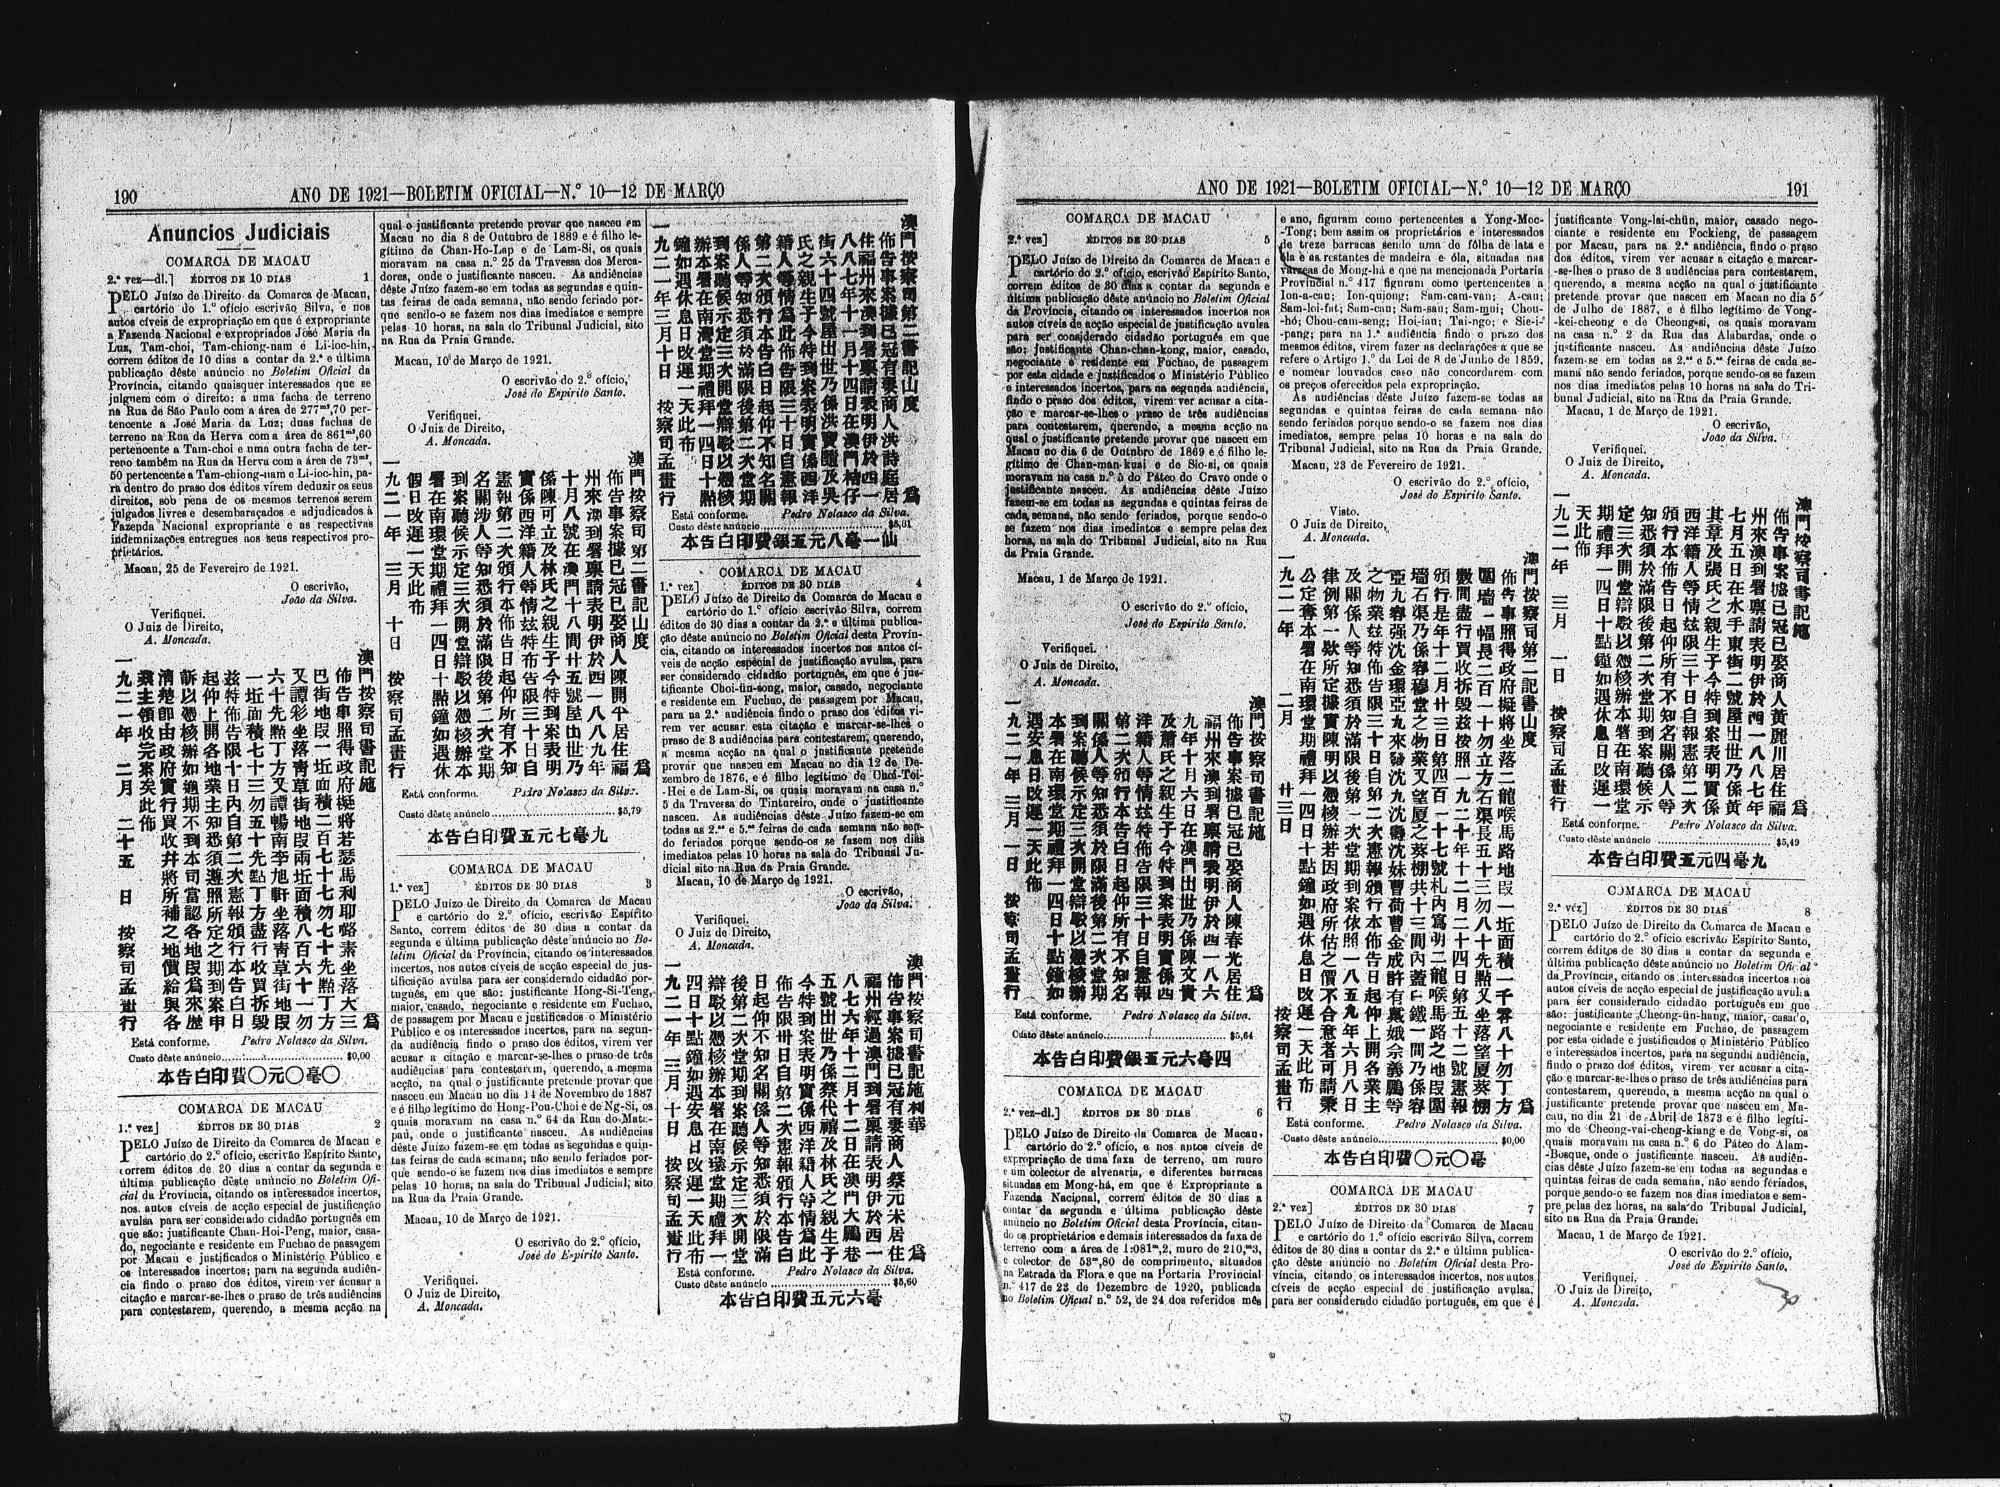 190
ANO DE 1921—BOLETIM OFICIAL—N.º 10—12 DE MARÇO
Anuncios Judiciais
COMARCA DE MACAU
2.ª vez—dl.] ÉDITOS DE 10 DIAS 1
PELO Juízo de Direito da Comarca de Macau,
cartório do 1.º ofício escrivão Silva, e nos
autos cíveis de expropriação em que é expropriante
a Fazenda Nacional e expropriados José Maria da
Luz, Tam-choi, Tam-chiong-nam e Li-ioc-hin,
correm éditos de 10 dias a contar da 2.ª e última
publicação dêste anúncio no Boletim Oficial da
Província, citando quaisquer interessados que se
julguem com o direito: a uma facha de terreno
na Rua de São Paulo com a área de 277m²,70 per-
tencente a José Maria da Luz; duas fachas de
terreno na Rua da Herva com a área de 861m²,60
pertencente a Tam-choi e uma outra facha de ter-
reno também na Rua da Herva com a área de 73m²,
50 pertencente a Tam-chiong-nam e Li-ioc-hin, pa-
ra dentro do praso dos éditos virem deduzir os seus
direitos, sob pena de os mesmos terrenos serem
julgados livres e desembaraçados e adjudicados à
Fazenda Nacional expropriante e as respectivas
indemnizações entregues aos seus respectivos pro-
prietários.
Macau, 25 de Fevereiro de 1921.
O escrivão,
João da Silva.
Verifiquei.
O Juiz de Direito,
A. Moncada.
澳門按察司書記施 為
佈告事照得政府擬將若瑟馬利耶嚕素坐落大三
巴街地段一坵面積二百七十七勿七十先點丁方
又譚彩坐落靑草街地段兩坵面積八百六十一勿
六十先點丁方又譚暢南李旭軒坐落靑草街地段
一坵面積七十三勿五十先點丁方盡行收買拆毀
茲特佈告限十日內自第二次憲報頒行本告白日
起仰上開各地業主知悉須遵照所定之期到案申
訴以憑核辦如逾期不到本司當認各地段爲來歷
淸楚卽由政府實行買收幷將所補之地價給與各
業主領收完案矣此佈
一九二一年 二月 二十五 日 按察司孟畫行
Está conforme. Pedro Nolasco da Silva.
Custo dêste anúncio.......................... $0,00
本告白印費〇元〇毫〇
COMARCA DE MACAU
1.ª vez] ÉDITOS DE 30 DIAS 2
PELO Juízo de Direito da Comarca de Macau e
cartório do 2.º ofício, escrivão Espírito Santo,
correm éditos de 30 dias a contar da segunda e
última publicação dêste anúncio no Boletim Ofi-
cial da Província, citando os interessados incertos,
nos autos cíveis de acção especial de justificação
avulsa para ser considerado cidadão português em
que são: justificante Chau-Hoi-Peng, maior, casa-
do, negociante e residente em Fuchao de passagem
por Macau e justificados o Ministério Público e
os interessados incertos; para na segunda audiên-
cia findo o praso dos éditos, virem ver acusar a
citação e marcar-se-lhes o praso de três audiências
para contestarem, querendo, a mesma acção na
qual o justificante pretende provar que nasceu em
Macau no dia 8 de Outubro de 1889 e é filho le-
gítimo de Chan-Ho-Lap e de Lam-Si, os quais
moravam na casa n.º 25 da Travessa dos Merca-
dores, onde o justificante nasceu. As audiências
dêste Juízo fazem-se em todas as segundas e quin-
tas feiras de cada semana, não sendo feriado por-
que sendo-o se fazem nos dias imediatos e sempre
pelas 10 horas, na sala do Tribunal Judicial, sito
na Rua da Praia Grande.
Macau, 10 de Março de 1921.
O escrivão do 2.º ofício,
José do Espírito Santo.
Verifiquei.
O Juiz de Direito,
A. Moncada.
澳門按察司第二書記山度 為
佈告事案據已冠已娶商人陳開平居住福
州來澳到署禀請表明伊於四一八八九年
十月八號在澳門十八間廿五號屋出世乃
係陳可立及林氏之親生子今特到案表明
實係西洋籍人等情玆特布告限三十日自
憲報第二次頒行本佈告日起仰所有不知
名關涉人等知悉須於滿限後第二次堂期
到案聽候示定三次開堂辯駁以憑核辦本
署在南環堂期禮拜一四日十點鐘如遇休
假日改遲一天此布
一九二一年 三月 十日 按察司孟畫行
Está conforme. Pedro Nolasco da Silva.
Custo dêste anúncio.......................... $5,79
本告白印費五元七毫九
COMARCA DE MACAU
1.ª vez] ÉDITOS DE 30 DIAS 3
PELO Juízo de Direito da Comarca de Macau
e cartório do 2.º ofício, escrivão Espírito
Santo, correm éditos de 30 dias a contar da
segunda e última publicação dêste anúncio no Bo-
letim Oficial da Província, citando os interessados
incertos, nos autos cíveis de acção especial de jus-
tificação avulsa para ser considerado cidadão por-
tuguês, em que são: justificante Hong-Si-Teng,
maior, casado, negociante e residente em Fuchao,
de passagem por Macau e justificados o Ministério
Público e os interessados incertos, para na segun-
da audiência findo o praso dos éditos, virem ver
acusar a citação e marcar-se-lhes o praso de três
audiências para contestarem, querendo, a mesma
acção, na qual o justificante pretende provar que
nasceu em Macau no dia 14 de Novembro de 1887
e é filho legítimo de Hong-Pou-Choi e de Ng-Si, os
quais moravam na casa n.º 64 da Rua do Mata-
pau, onde o justificante nasceu. As audiências
dêste Juízo fazem-se em todas as segundas e quin-
tas feiras de cada semana; não sendo feriados por-
que sendo-o se fazem nos dias imediatos e sempre
pelas 10 horas, na sala do Tribunal Judicial, sito
na Rua da Praia Grande.
Macau, 10 de Março de 1921.
O escrivão do 2.º ofício,
José do Espírito Santo.
Verifiquei.
O Juiz de Direito,
A. Moncada.
澳門按察司第二書記山度 為
佈告事案據已冠有妻商人洪詩庭居
住福州來澳到署禀請表明伊於四一
八八七年十一月十四日在澳門桔仔
街六十四號屋出世乃係洪寶題及吳
氏之親生子今特到案表明實係西洋
籍人等情爲此佈告限三十日自憲報
第二次頒行本告白日起仲不知名關
係人等知悉須於滿限後第二次堂期
到案聽候示定三次開堂辯駁以憑核
辦本署在南灣堂期禮拜一四日十點
鐘如遇休息日改遲一天此布
一九二一年三月十日 按察司孟畫行
Está conforme. Pedro Nolasco da Silva.
Custo dêste anúncio.......................... $5,81
本告白印費銀五元八毫一仙
COMARCA DE MACAU
1.ª vez] ÉDITOS DE 30 DIAS 4
PELO Juízo de Direito da Comarca de Macau e
cartório do 1.º ofício escrivão Silva, correm
éditos de 30 dias a contar da 2.ª e última publica-
ção dêste anúncio no Boletim Oficial desta Provín-
cia, citando os interessados incertos nos autos cí-
veis de acção especial de justificação avulsa, para
ser considerado cidadão português, em que é jus-
tificante Choi-ün-song, maior, casado, negociante
e residente em Fuchao, de passagem por Macau,
para na 2.ª audiência findo o praso dos éditos vi-
rem ver acusar esta citação e marcar-se-lhes o
praso de 3 audiências para contestarem, querendo,
a mesma acção na qual o justificante pretende
provar que nasceu em Macau no dia 12 de De-
zembro de 1876, e é filho legítimo de Choi-Toi-
-Hei e de Lam-Si, os quais moravam na casa n.º
5 da Travessa do Tintureiro, onde o justificante
nasceu. As audiências dêste Juízo fazem-se em
todas as 2.ªs e 5.ªs feiras de cada semana não sen-
do feriados porque sendo-os se fazem nos dias
imediatos pelas 10 horas na sala do Tribunal Ju-
dicial sito na Rua da Praia Grande.
Macau, 10 de Março de 1921.
O escrivão,
João da Silva.
Verifiquei.
O Juiz de Direito,
A. Moncada.
澳門按察司書記施利華 為
佈告事案據已冠有妻商人蔡元宋居住
福州經過澳門到署禀請表明伊於西一
八七六年十二月十二日在澳門大鵬巷
五號出世乃係蔡代禧及林氏之親生子
今特到案表明實係西洋籍人等情爲此
佈告限卅日自第二次憲報頒行本告白
日起仰不知名關係人等知悉須於限滿
後第二次堂期到案聽候示定三次開堂
辯駁以憑核辦本署在南環堂期禮拜一
四日十點鐘如遇安息日改遲一天此布
一九二一年 三月 十日 按察司孟畫行
Está conforme. Pedro Nolasco da Silva.
Custo dêste anúncio .......................... $5,60
本告白印費五元六毫
ANO DE 1921—BOLETIM OFICIAL—N.º 10—12 DE MARÇO
191
COMARCA DE MACAU
2.ª vez] ÉDITOS DE 30 DIAS 5
PELO Juízo de Direito da Comarca de Macau e
cartório do 2.º ofício, escrivão Espírito Santo,
correm éditos de 30 dias a contar da segunda e
última publicação dêste anúncio no Boletim Oficial
da Província, citando os interessados incertos nos
autos cíveis de acção especial de justificação avulsa
para ser considerado cidadão português em que
são: justificante Chan-chan-kong, maior, casado,
negociante e residente em Fuchao, de passagem
por esta cidade e justificados o Ministério Público
e interessados incertos, para na segunda audiência,
findo o praso dos éditos, virem ver acusar a cita-
ção e marcar-se-lhes o praso de três audiências
para contestarem, querendo, a mesma acção na
qual o justificante pretende provar que nasceu em
Macau no dia 6 de Outubro de 1869 e é filho le-
gítimo de Chan-man-kuai e de Sio-si, os quais
moravam na casa n.º 5 do Páteo do Cravo onde o
justificante nasceu. As audiências dêste Juízo
fazem-se em todas as segundas e quintas feiras de
cada semana, não sendo feriados, porque sendo-o
se fazem nos dias imediatos e sempre pelas dez
horas, na sala do Tribunal Judicial, sito na Rua
da Praia Grande.
Macau, 1 de Março de 1921.
O escrivão do 2.º ofício,
José do Espírito Santo.
Verifiquei.
O Juiz de Direito,
A. Moncada.
澳門按察司書記施 為
佈告事案據已冠已娶商人陳春光居住
福州來澳到署禀請表明伊於西一八六
九年十月六日在澳門出世乃係陳文貴
及蕭氏之親生子今特到案表明實係西
洋籍人等情玆特佈告限三十日自憲報
第二次頒行本告白日起仲所有不知名
關係人等知悉須於限滿後第二次堂期
到案聽候示定三次開堂辯駁以憑核辦
本署在南環堂期禮拜一四日十點鐘如
遇安息日改遲一天此佈
一九二一年 三月 一日 按察司孟畫行
Está conforme. Pedro Nolasco da Silva.
Custo dêste anúncio.......................... $5,64
本告白印費銀五元六毫四
COMARCA DE MACAU
2.ª vez—dl.] ÉDITOS DE 30 DIAS 6
PELO Juízo de Direito da Comarca de Macau,
cartório do 2.º ofício, e nos autos cíveis de
expropriação de uma faxa de terreno, um muro
e um colector de alvenaria, e diferentes barracas
situadas em Mong-há, em que é Expropriante a
Fazenda Nacional, correm éditos de 30 dias a
contar da segunda e última publicação dêste
anúncio no Boletim Oficial desta Província, citan-
do os proprietários e demais interessados da faxa de
terreno com a área de 1:081m,2, muro de 210,m3,
e colector de 53m,80 de comprimento, situados
na Estrada da Flora e que na Portaria Provincial
n.º 417 de 23 de Dezembro de 1920, publicada
no Boletim Oficial n.º 52, de 24 dos referidos mês
e ano, figuram como pertencentes a Yong-Moc-
-Tong; bem assim os proprietários e interessados
de treze barracas sendo uma de fôlha de lata e
óla e as restantes de madeira e óla, situadas nas
várzeas de Mong-há e que na mencionada Portaria
Provincial n.º 417 figuram como pertencentes a
Ion-a-cau; Ion-quiong; Sam-cam-van; A-cau;
Sam-loi-fat; Sam-cau; Sam-sau; Sam-mui; Chou-
-hó; Chou-cam-seng; Hoi-iau; Tai-ngo; e Sie-i-
-pang; para na 1.ª audiência findo o prazo dos
mesmos éditos, virem fazer as declarações a que se
refere o Artigo 1.º da Lei de 8 de Junho de 1859,
e nomear louvados caso não concordarem com
os preços oferecidos pela expropriação.
As audiências dêste Juízo fazem-se todas as
segundas e quintas feiras de cada semana não
sendo feriados porque sendo-o se fazem nos dias
imediatos, sempre pelas 10 horas e na sala do
Tribunal Judicial, sito na Rua da Praia Grande.
Macau, 23 de Fevereiro de 1921.
O escrivão do 2.º ofício,
José do Espírito Santo.
Visto.
O Juiz de Direito,
A. Moncada.
澳門按察司第二記書山度 為
佈告事照得政府擬將坐落二龍喉馬路地段一坵面積一千零八十勿丁方
圍墻一幅長二百一十勿立方石渠長五十三勿八十先點又坐落望厦葵棚
數間盡行買收拆毀茲按照一九二十年十二月二十四日第五十二號憲報
頒行是年十二月廿三日第四百一十七號札內爲朔二龍喉馬路之地段圍
墻石渠乃係容穆堂之物業又望厦之葵棚共十三間內蓋鐵一間乃係容
亞九容强沈金環亞九來發沈九沈縣沈妹曹荷曹金成許有戴娥佘義鵬等
之物業茲特佈告限三十日自第二次憲報頒行本佈告日起仲上開各業主
及關係人等知悉須於滿限後第一次堂期到案依照一八五九年六月八日
律例第一欵所定據實陳明以憑核辦若因政府所估之價不合意者可請秉
公定奪本署在南環堂期禮拜一四日十點鐘如遇休息日改遲一天此布
一九二一年 二月 廿三日 按察司孟畫行
Está conforme. Pedro Nolasco da Silva.
Custo dêste anúncio.......................... $0,00
本告白印費〇元〇毫
COMARCA DE MACAU
2.ª vez] ÉDITOS DE 30 DIAS 7
PELO Juízo de Direito da Comarca de Macau
e cartório do 1.º ofício escrivão Silva, correm
éditos de 30 dias a contar da 2.ª e última publica-
ção dêste anúncio no Boletim Oficial desta Pro-
víncia, citando os interessados incertos, nos autos
cíveis de acção especial de justificação avulsa,
para ser considerado cidadão português, em que é
justificante Vong-lai-chün, maior, casado nego-
ciante e residente em Fockieng, de passagem
por Macau, para na 2.ª audiência, findo o praso
dos éditos, virem ver acusar a citação e marcar-
-se-lhes o praso de 3 audiências para contestarem,
querendo, a mesma acção na qual o justificante
pretende provar que nasceu em Macau no dia 5
de Julho de 1887, e é filho legítimo de Vong-
-kei-cheong e de Cheong-si, os quais moravam
na casa n.º 2 da Rua das Alabardas, onde o
justificante nasceu. As audiências dêste Juízo
fazem-se em todas as 2.ªs e 5.ªs feiras de cada se-
mana não sendo feriados, porque sendo-os se fazem
nos dias imediatos pelas 10 horas na sala do Tri-
bunal Judicial, sito na Rua da Praia Grande.
Macau, 1 de Março de 1921.
O escrivão,
João da Silva.
Verifiquei.
O Juiz de Direito,
A. Moncada.
澳門按察司書記施 為
佈告事案據已冠已娶商人黃麗川居住福
州來澳到署禀請表明伊於四一八八七年
七月五日在水手東街二號屋出世乃係黃
其章及張氏之親生子今特到案表明實係
西洋籍人等情玆限三十日自報憲第二次
頒行本佈告日起仰所有不知名關係人等
知悉須於滿限後第二次堂期到案聽候示
定三次開堂辯駁以憑核辦本署在南環堂
期禮拜一四日十點鐘如遇休息日改遲一
天此佈
一九二一年 三月 一日 按察司孟畫行
Está conforme. Pedro Nolasco da Silva.
Custo dêste anúncio .......................... $5,49
本告白印費五元四毫九
COMARCA DE MACAU
2.ª vez] ÉDITOS DE 30 DIAS 8
PELO Juízo de Direito da Comarca de Macau e
cartório do 2.º ofício escrivão Espírito Santo,
correm éditos de 30 dias a contar da segunda e
última publicação dêste anúncio no Boletim Oficial
da Província, citando os interessados incertos nos
autos cíveis de acção especial de justificação avulsa
para ser considerado cidadão português em que
são: justificante Cheong-ün-hang, maior, casado,
negociante e residente em Fuchao, de passagem
por esta cidade e justificados o Ministério Público
e interessados incertos, para na segunda audiência,
findo o praso dos éditos, virem ver acusar a cita-
ção e marcar-se-lhes o praso de três audiências
para contestarem, querendo, a mesma acção na qual o
justificante pretende provar que nasceu em Ma-
cau, no dia 21 de Abril de 1873 e é filho legíti-
mo de Cheong-vai-cheng-kiang e de Vong-si, os
quais moravam na casa n.º 6 do Páteo do Alam-
-Bosque, onde o justificante nasceu. As audiên-
cias dêste Juízo fazem-se em todas as segundas e
quintas feiras de cada semana, não sendo feriados,
porque sendo-o se fazem nos dias imediatos e sem-
pre pelas dez horas, na sala do Tribunal Judicial,
sito na Rua da Praia Grande.
Macau, 1 de Março de 1921.
O escrivão do 2.º ofício,
José do Espírito Santo.
Verifiquei.
O Juiz de Direito,
A. Moncada.